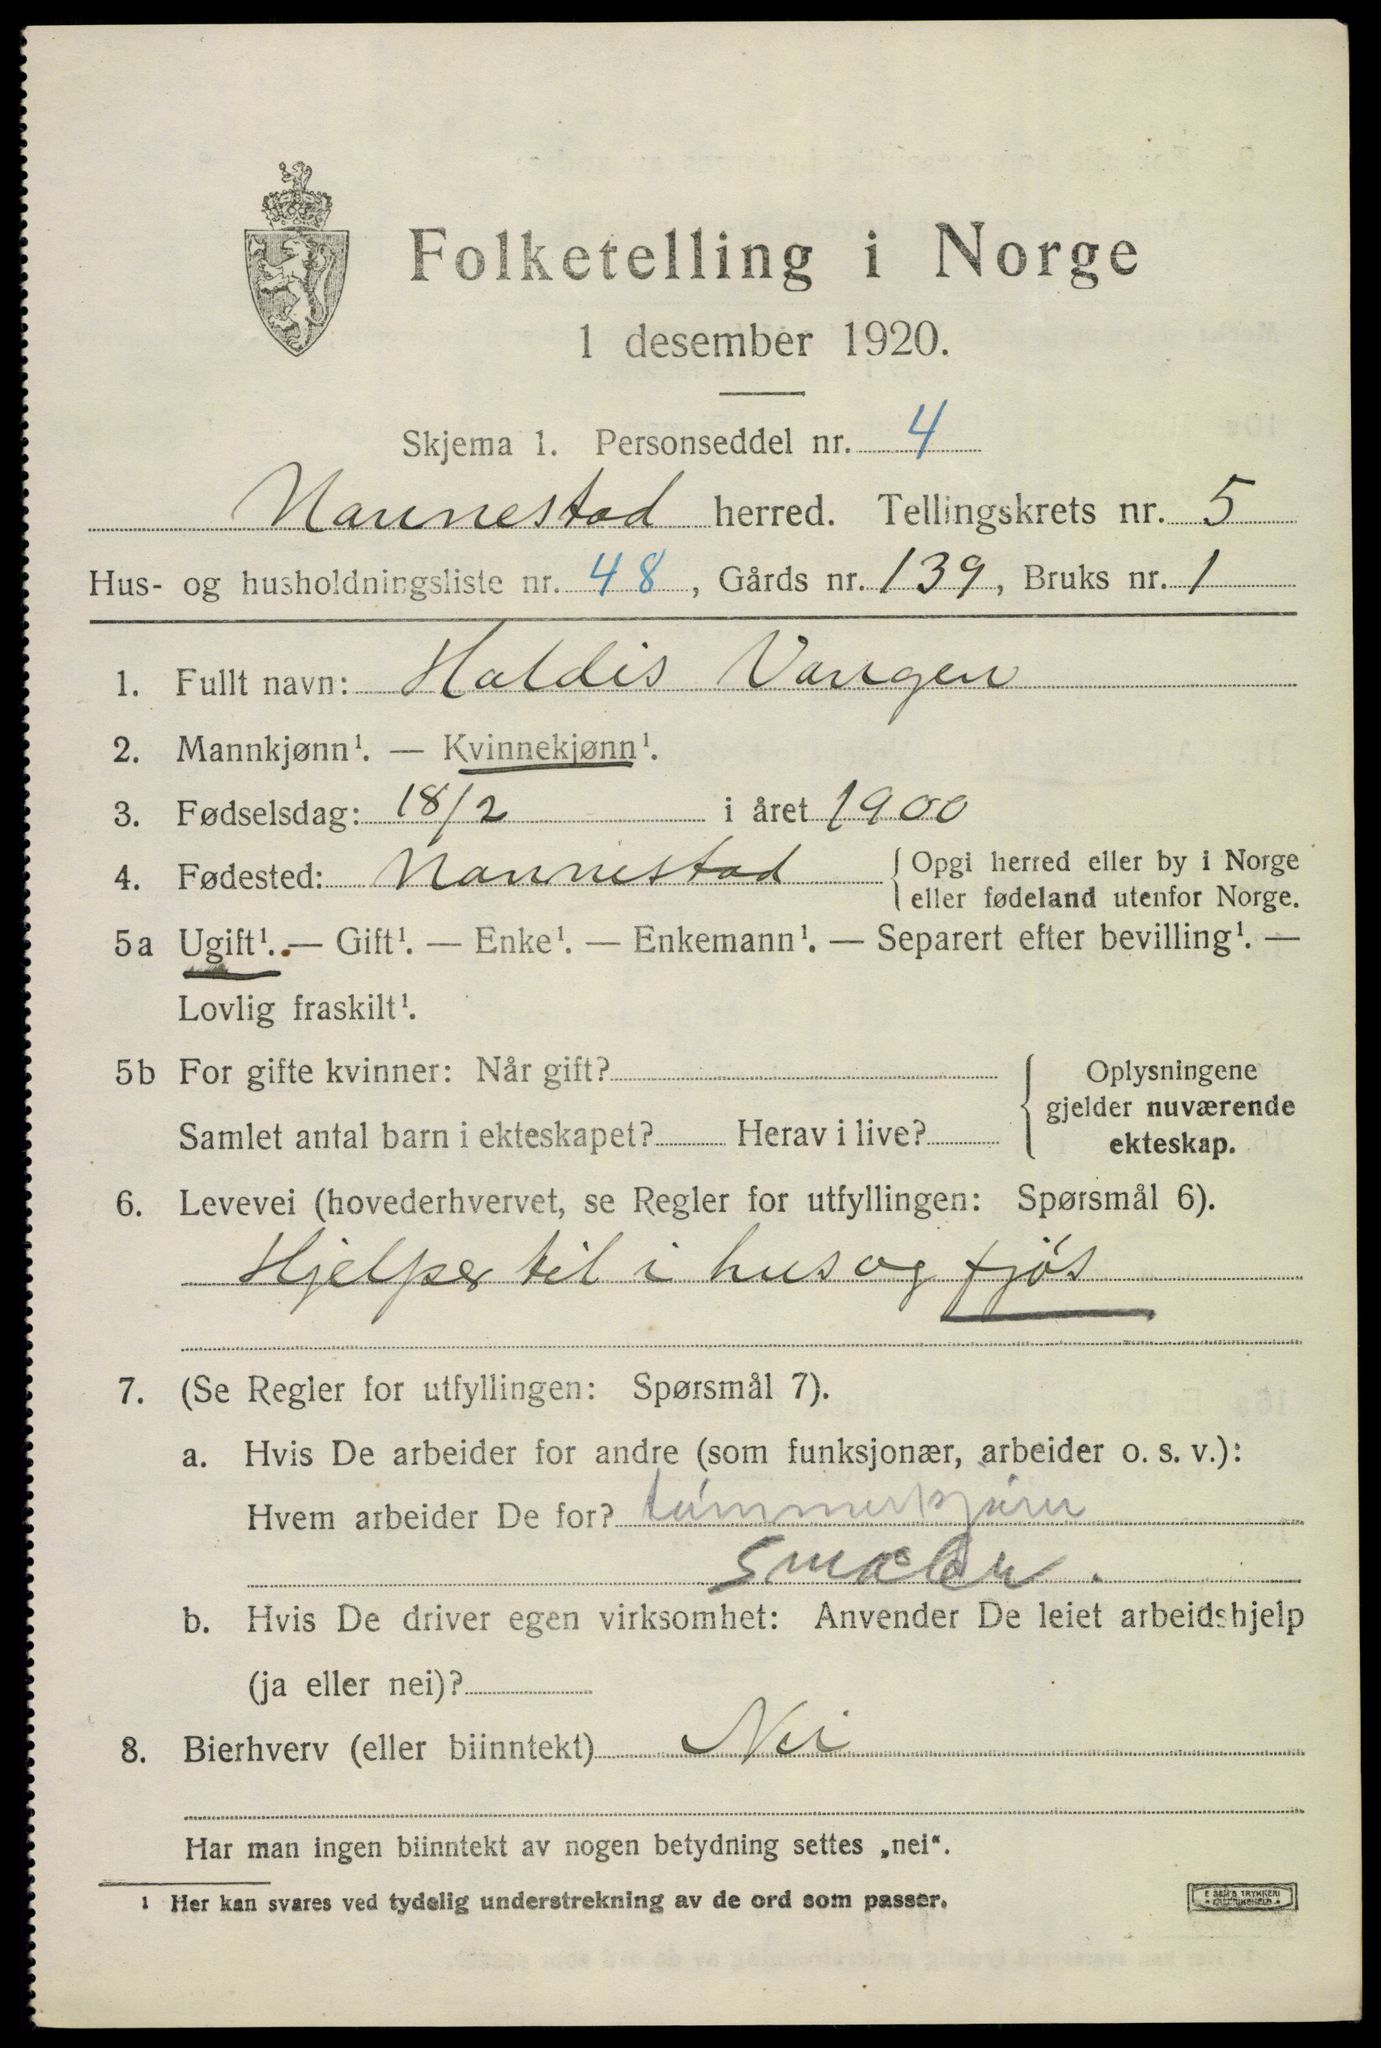 Folketelling i Norge
1 desember 1920.
Skjema 1. Personseddel nr. 4
Nannestad herred. Tellingskrets nr. 5
Hus- og husholdningsliste nr. 48, Gårds nr. 139, Bruks nr. 1
1. Fullt navn: Haldis Vangen
2. Mannkjønn¹. — Kvinnekjønn¹.
3. Fødselsdag: 18/2 i året 1900
4. Fødested: Nannestad {Opgi herred eller by i Norge
eller fødeland utenfor Norge.
5a Ugift¹. — Gift¹. — Enke¹. — Enkemann¹. — Separert efter bevilling¹. —
Lovlig fraskilt¹.
5b For gifte kvinner: Når gift?
Samlet antal barn i ekteskapet? Herav i live?
{ Oplysningene
gjelder nuværende
ekteskap.
6. Levevei (hovederhvervet, se Regler for utfyllingen: Spørsmål 6).
Hjelper til i hus og fjøs
7. (Se Regler for utfyllingen: Spørsmål 7).
a. Hvis De arbeider for andre (som funksjonær, arbeider o. s. v.):
Hvem arbeider De for? tømmerkjører
b. Hvis De driver egen virksomhet: Anvender De leiet arbeidshjelp
(ja eller nei)?
8. Bierhverv (eller biinntekt) Nei
Har man ingen biinntekt av nogen betydning settes „nei“.
1 Her kan svares ved tydelig understrekning av de ord som passer.